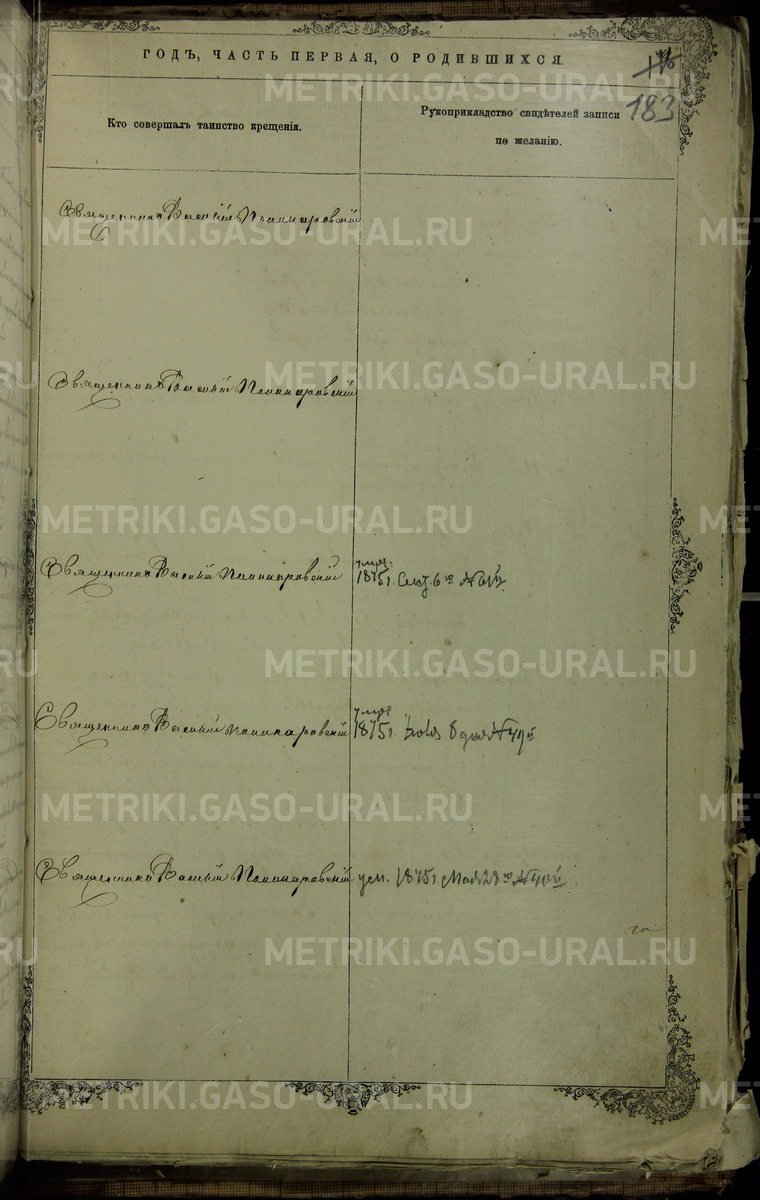 ГОДЪ, ЧАСТЬ ПЕРВАЯ, О РОДИВШИХСЯ.
183
Кто совершалъ таинство крещенія.
Рукоприкладство свидѣтелей записи
по желанію.
Священникъ Василій Пономаровскій
Священникъ Василій Пономаровскій
Священникъ Василій Пономаровскій
умер.
1875 г.
Священникъ Василій Пономаровскій
умер
1875 г.
Священникъ Василій Пономаровскій
ум. 1875 г. Мая 28 го
METRIKI.GASO-URAL.RU